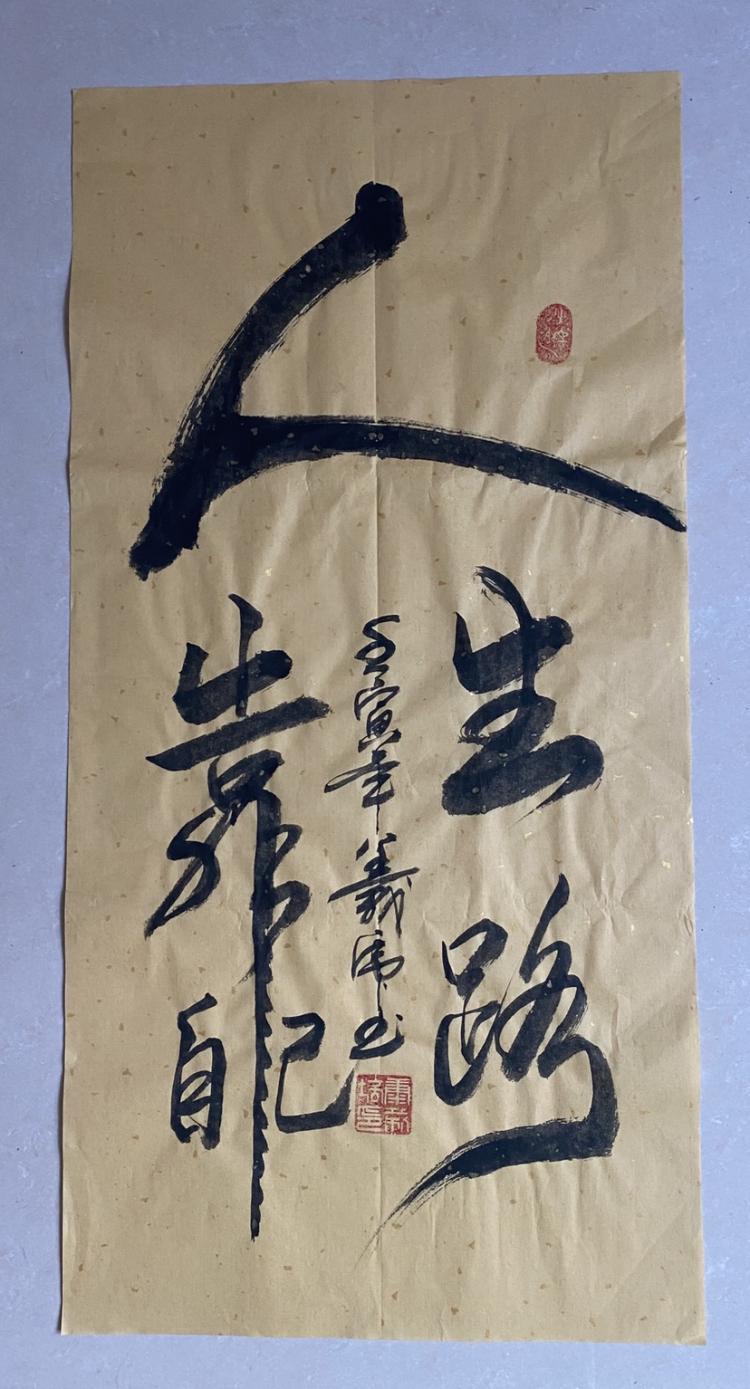 人
生路
靠自己
壬寅年義虎书